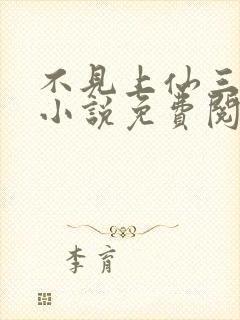 不見上仙三
小說免費閱
李育